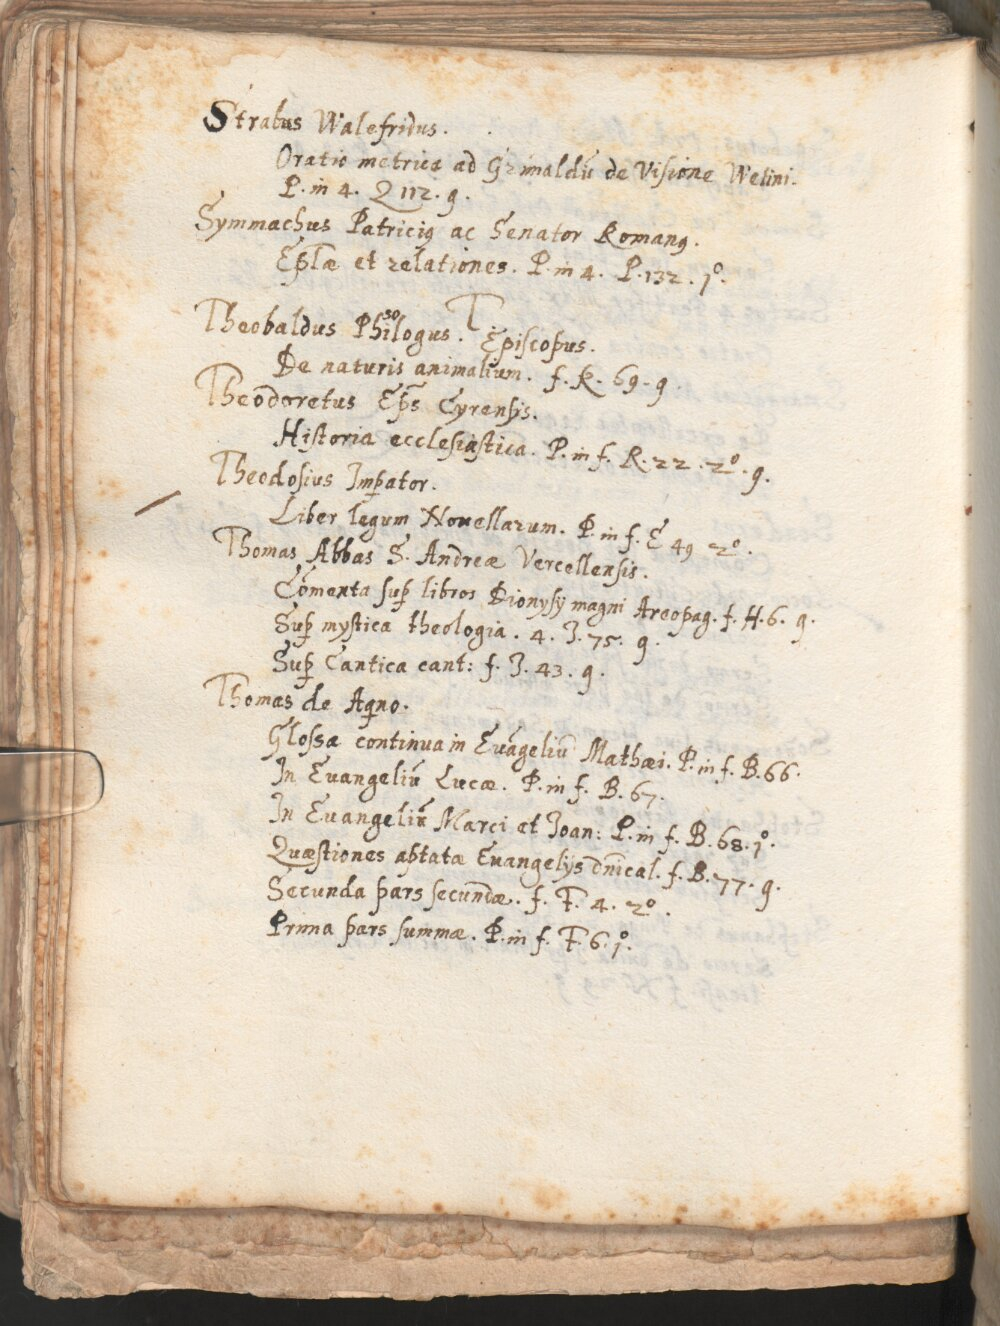 Strabus Walefridus.
Oratio metrica ad Grimaldū de Visione Wetini.
P. in 4. Q 112. 9.
Symmachus Patriciꝰ ac Senator Romanꝰ.
Ep̄læ et relationes. P. in 4. P. 132. 1º.
T.
Theobaldus Phisologus. Episcopus.
De naturis animalium. f. K. 69. 9.
Theodoretus Ep̄s Cyrensis.
Historia ecclesiastica. P. in f. R. 22. 2º. 9.
Theodosius Imꝑator.
Liber legum Nouellarum. P. in f. E 49 2º.
Thomas Abbas S. Andreæ Vercellensis.
Cōmenta suꝑ libros Dionysij magni Areopag. f. H. 6. 9.
Suꝑ mystica theologia. 4. I. 75. 9.
Suꝑ Cantica cant: f. I. 43. 9.
Thomas de Aqno.
Glossa continua in Euāgeliū Mathæi. P. in f. B. 66.
In Euangeliū Lucæ. P. in f. B. 67.
In Euangeliū Marci et Joan: P. in f. B. 68. 1º.
Quæstiones aptata Euangelijs dn̄ical. f. B. 77. 9.
Secunda pars secundæ. f. F. 4. 2º.
Prima pars summæ. P. in f. F. 6. 1º.